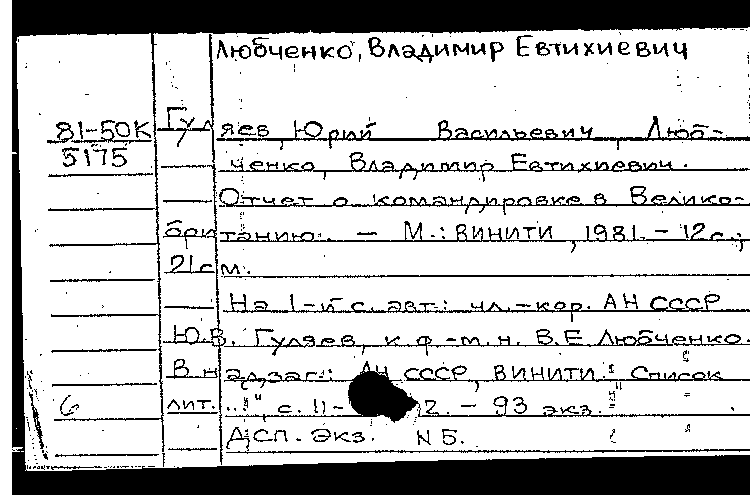 Любченко, Владимир Евтихиевич
81-50К Гуляев, Юрий Васильевич, Люб-
5175 ченко, Владимир Евтихиевич.
Отчет о командировке в Велико-
британию. — М.: ВИНИТИ, 1981. - 12 с.;
21 см.
На 1-й с. авт.: чл.-кор. АН СССР
Ю.В. Гуляев, к.ф.-м.н. В.Е. Любченко.
В надзаг.: АН СССР, ВИНИТИ. Список
6 лит.: с. 11-12. - 93 экз.
ДСП. Экз. N 5.